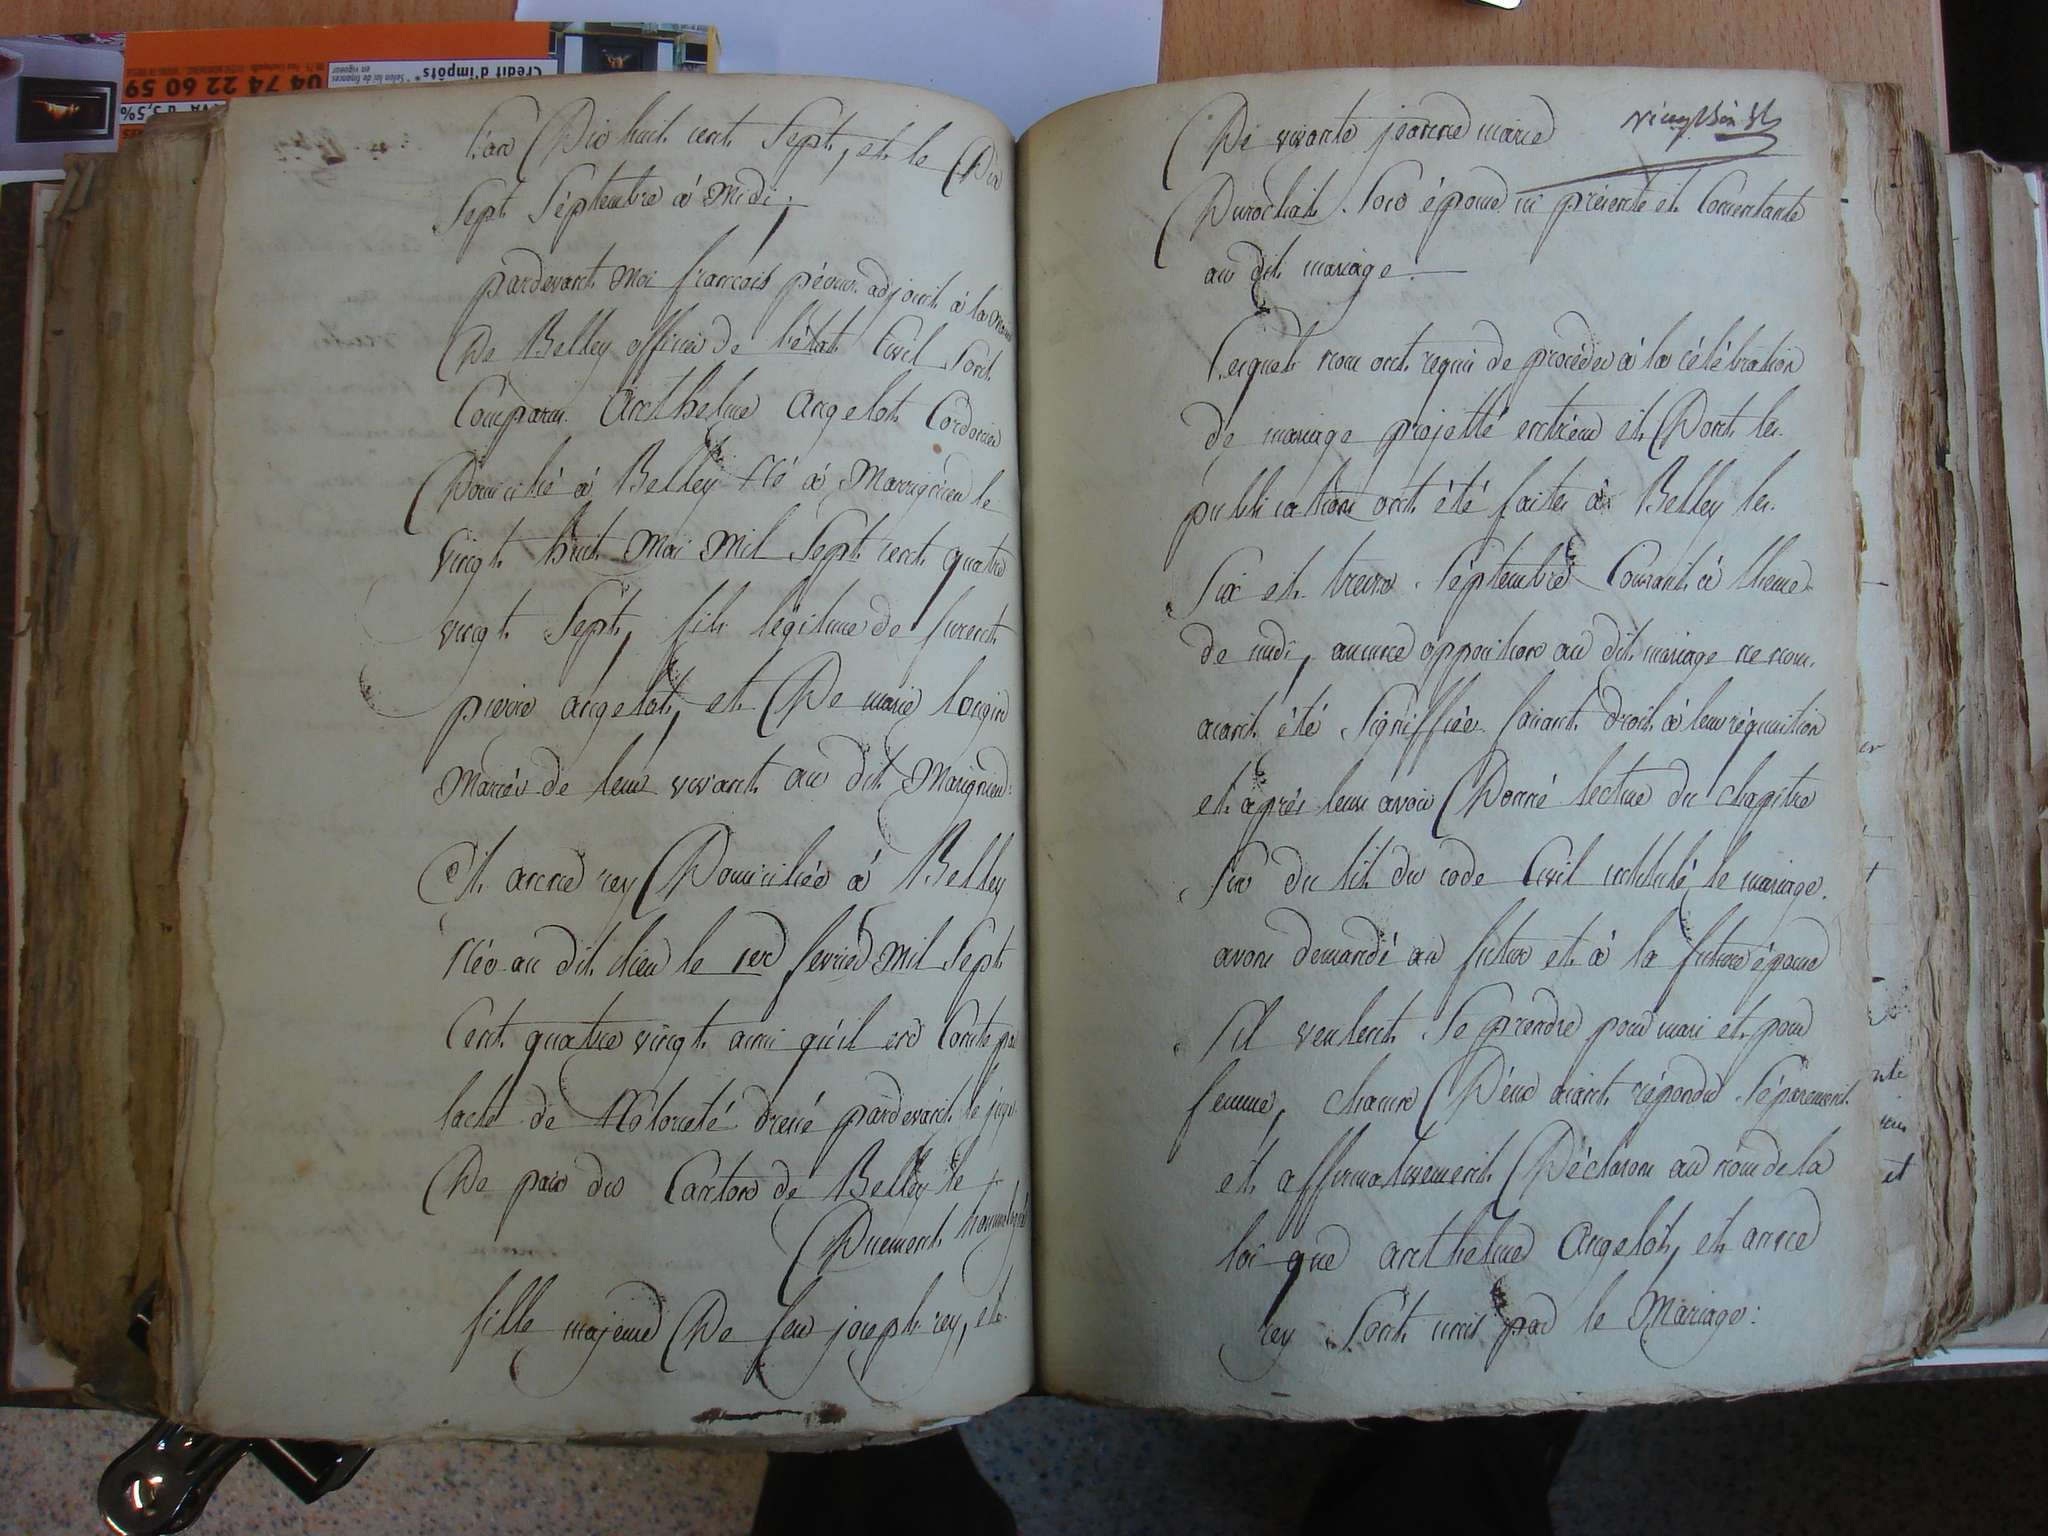 Crédit d'impôts
04 74 22 60 59
L'an Dix huit cent Sept, et le Dix
Sept Séptembre à Midi;
pardevant Moi françois adjoint à la
De Belley officier de l'état Civil Sont
Comparu Anthelme Angelot Cordonier
Domicilié à Belley Né à Marrignieu le
Vingt huit Mai Mil Sept cent quatre
vingt Sept, fils légitime de furent
pierre angelot, et De marie longin
Mariés de leur vivant au dit Marignieu:
Et anne rey Domiciliée à Belley
Née au dit lieu le 1er fevrier Mil Sept
Cent quatre vingt ainsi qu'il en Conste par
lacte de Notorieté dressé pardevant le juge
De paix du Canton de Belley le
Duement
fille majeure De feu joseph rey, et
De vivante jeanne marie
Durochat Son épouse ici présente et Consentante
au dit mariage
Lesquels nous ont requis de procéder à la célébration
de mariage projetté entreeux et Dont les
publications ont été faites à Belley les
Six et treize Séptembre Courant à lheure
de midi, aucune opposition au dit mariage ne nous
aiant été Signiffiée faisant droit à leur réquisition
et après leur avoir Donné lecture du chapitre
Six du tit du code Civil intitulé le mariage.
avons demandé au futur et à la future épouse
Sil veulent Se prendre pour mari et pour
femme, chacun D'eux aiant répondu Séparement
et affirmativement Déclarons au nom de la
loi que anthelme Angelot, et anne
rey Sont unis par le Mariage: